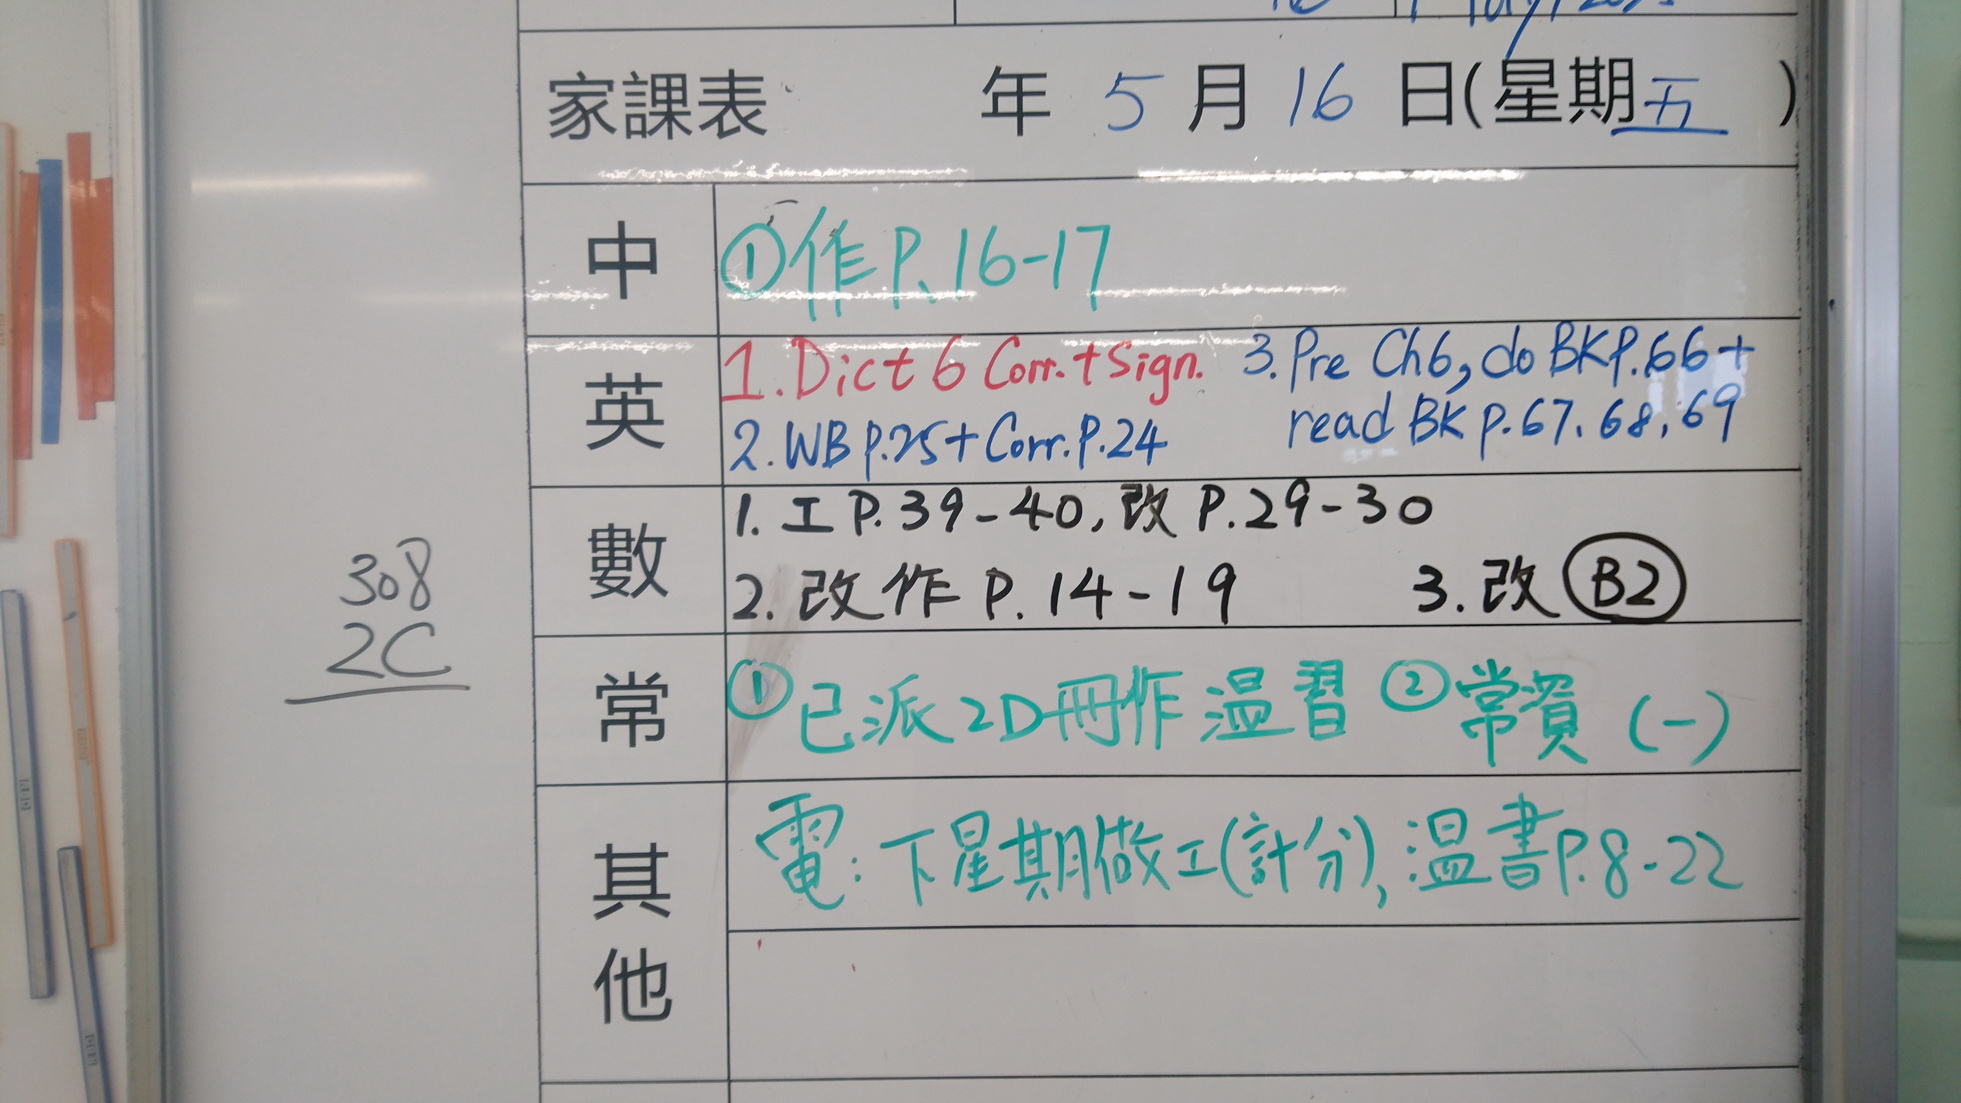 家課表 年 5 月 16 日(星期五)
中 ①作P.16-17
英 1.Dict 6 Corr.+Sign. 3.Pre Ch6, do BKP.66+
2.WB P.25+Corr.P.24 read BK P.67.68,69
數 1. 工 P.39-40, 改 P.29-30
2. 改作 P.14-19 3.改 B2
308
2C
常 ①已派2D冊作溫習 ②常資(一)
其他 電:下星期做工(計分), 溫書P.8-22